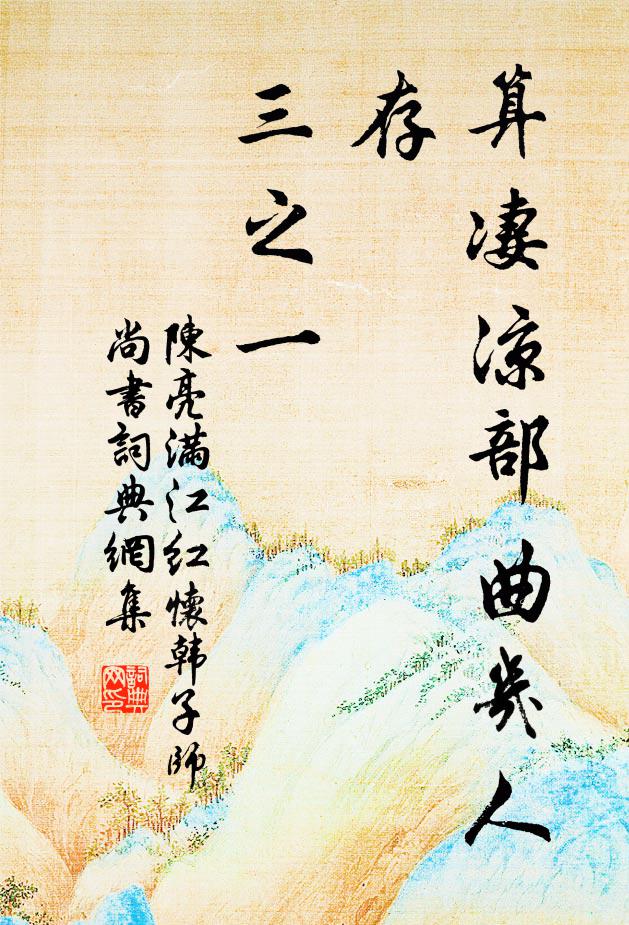 算凄涼部曲幾人
存
三之一
陳亮滿江紅懷韩子師
尚書詞典網集
詞典
网印